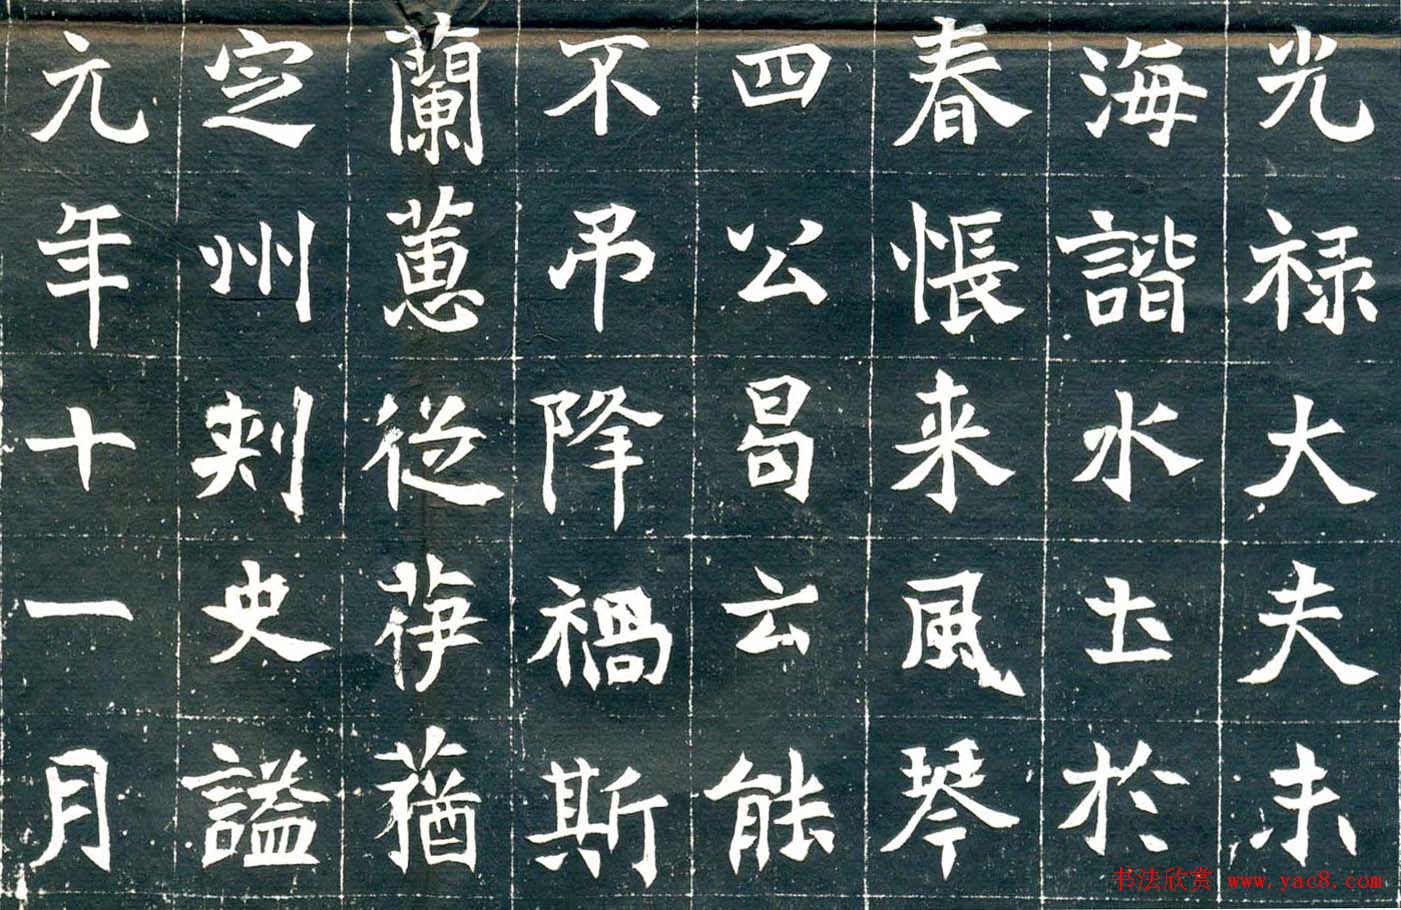 光禄大夫未
海諧水土於
春悵来風琴
四公曷云能
不吊降禍斯
蘭蕙從蕕
定州刺史謚
元年十一月
书法欣赏 www.yac8.com